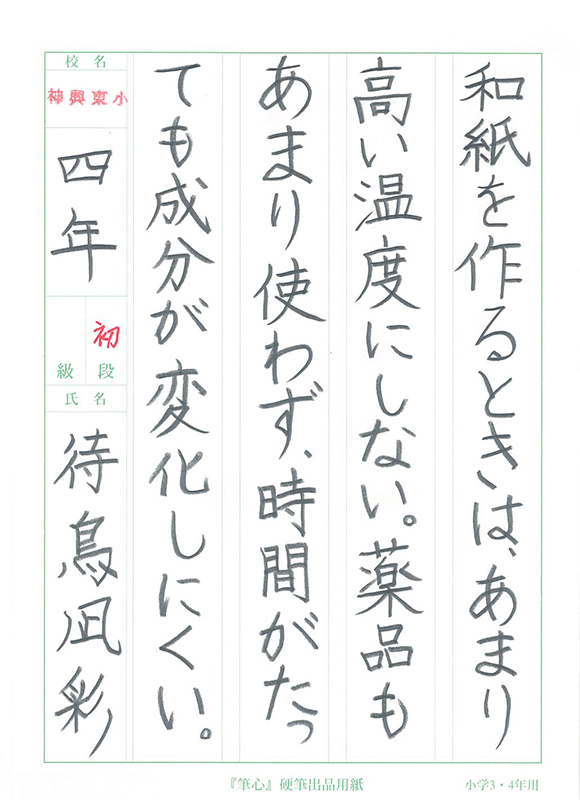 和紙を作るときは、あまり
高い温度にしない。薬品も
あまり使わず、時間がたっ
ても成分が変化しにくい。
校名
神興東小
四年
初
段
級
氏名
待鳥凪彩
『筆心』硬筆出品用紙
小学3・4年用